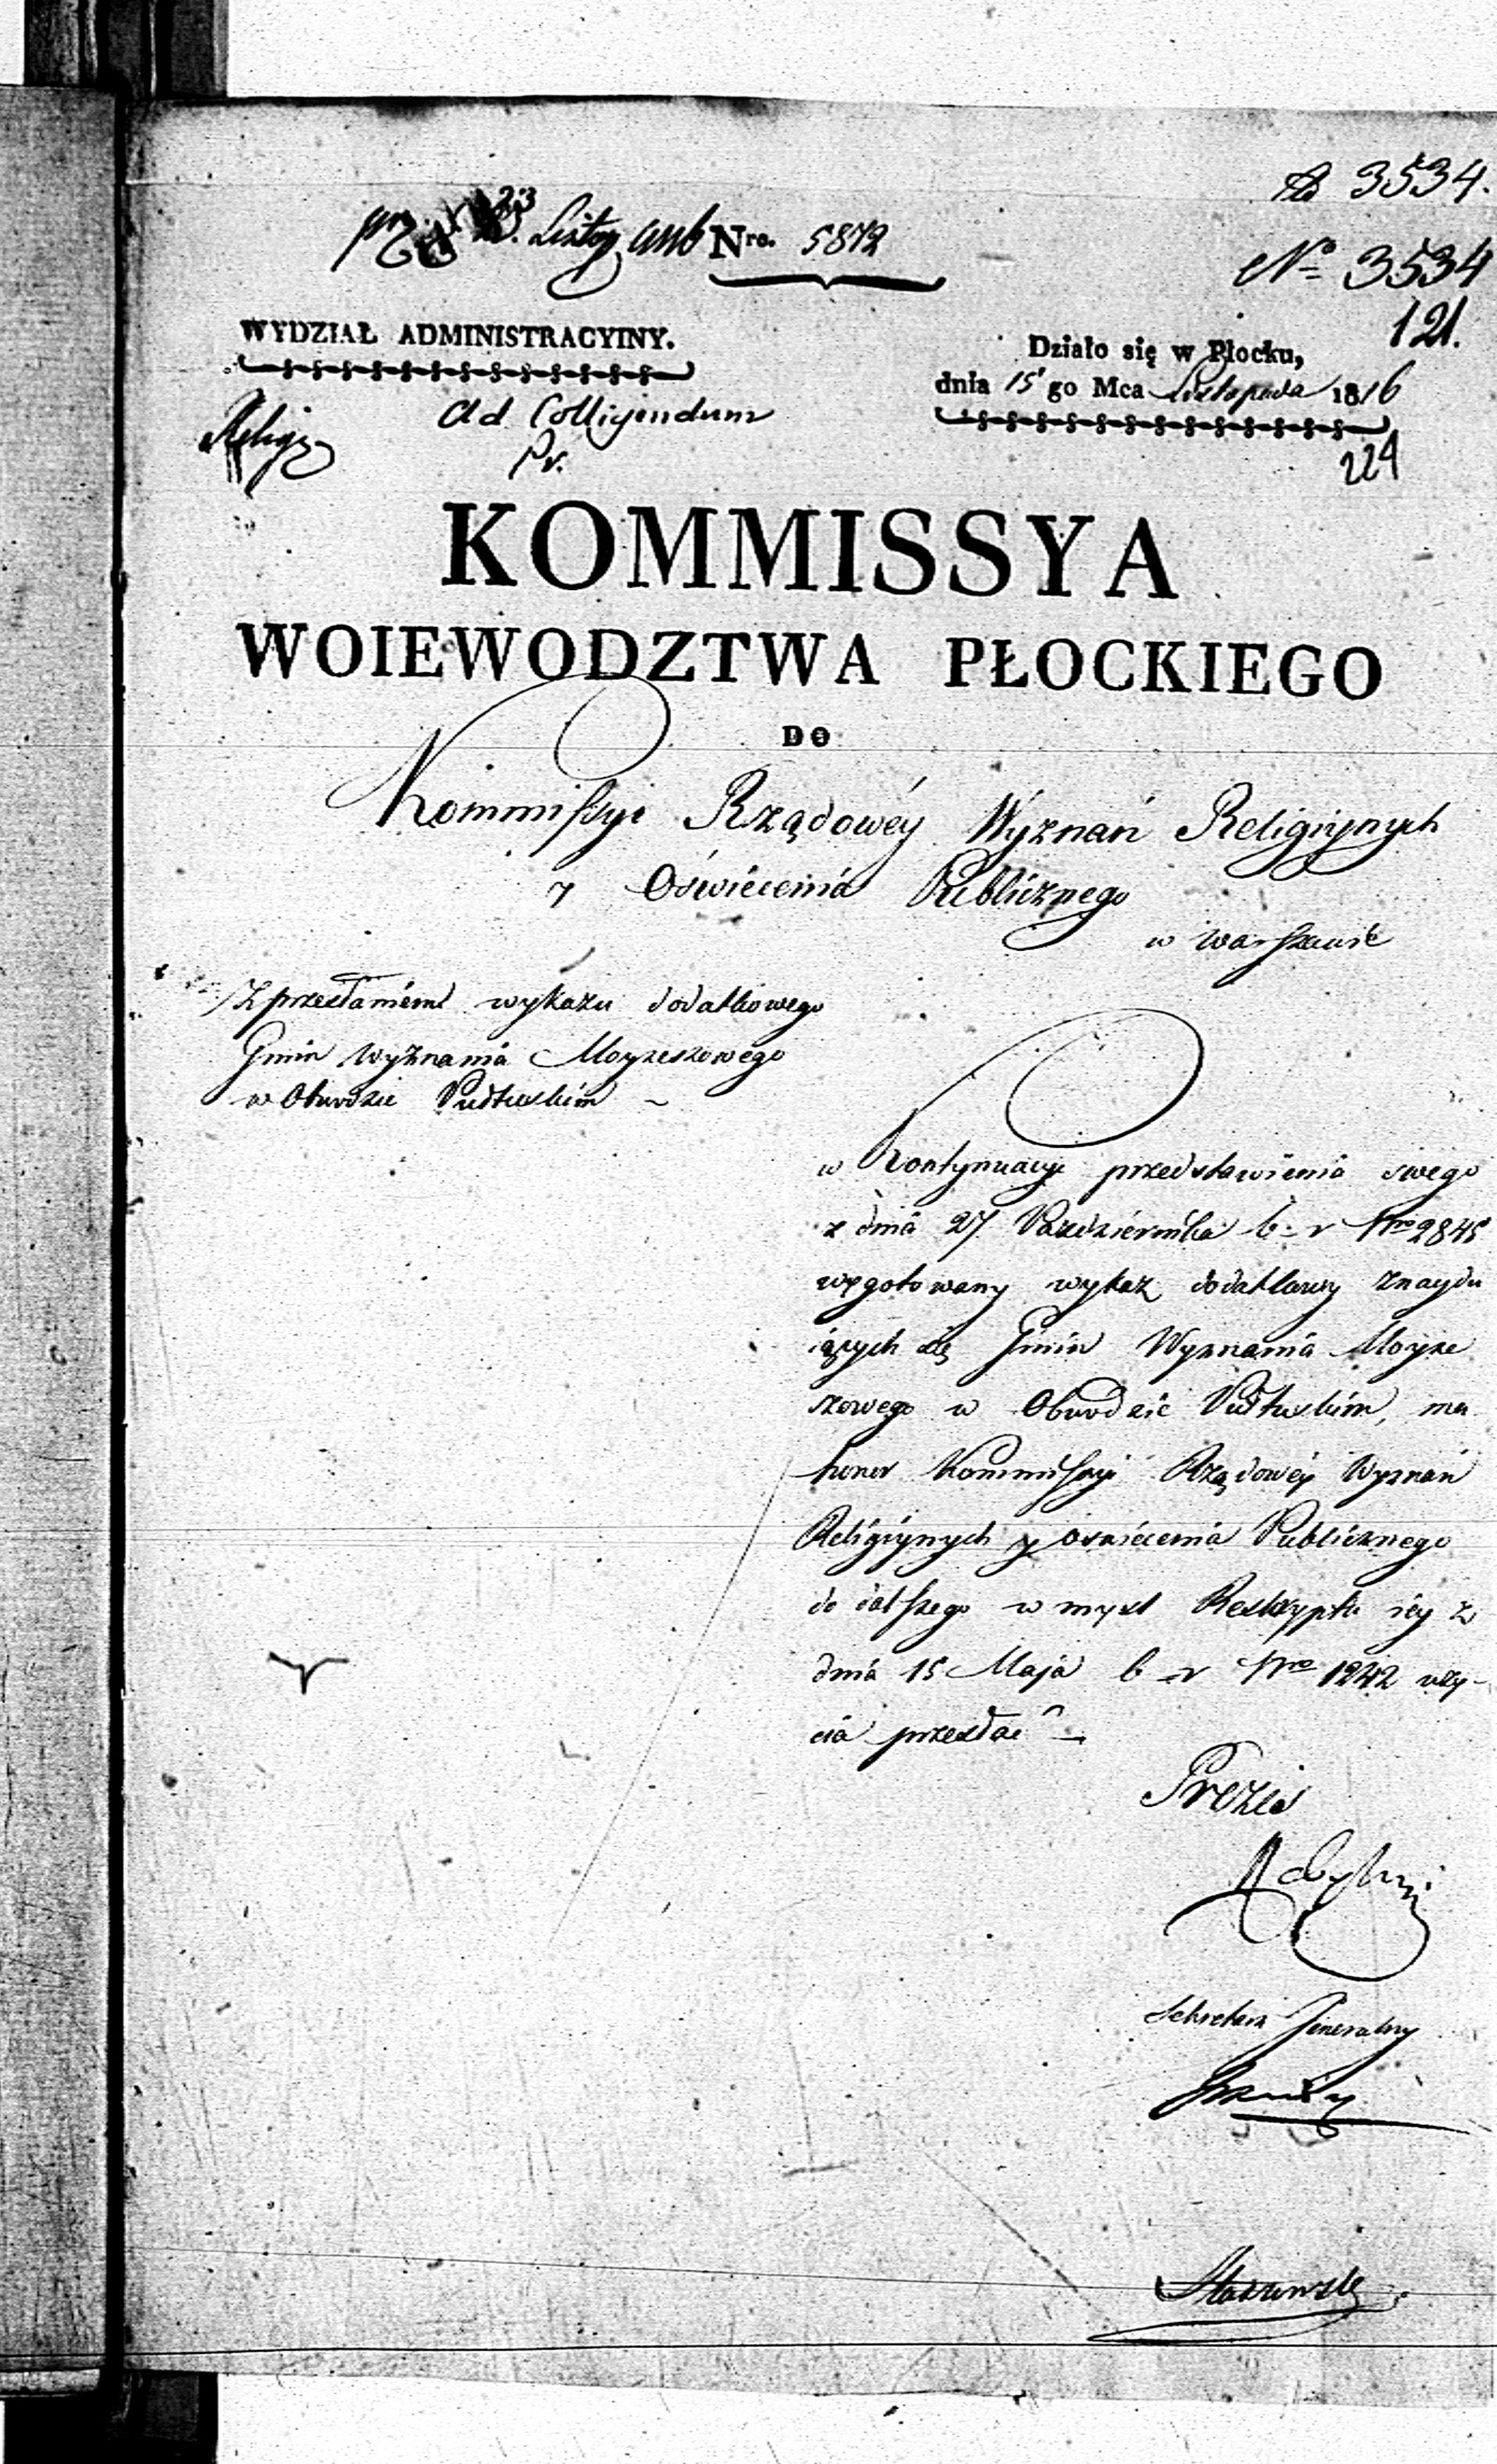 3534.
23 Listop 1816 Nro. 5872
No 3534
121.
WYDZIAŁ ADMINISTRACYINY.
Działo się w Płocku,
dnia 15 go Mca Listopada 1816
Ad Colligendum
Pr.
224
KOMMISSYA
WOIEWODZTWA PŁOCKIEGO
DO
Kommissyi Rządowéy Wyznań Religiynych
y Oświecenia Publicznego
w Warszawie
Z przesłaniem wykazu dodatkowego
Gmin Wyznania Moyżeszowego
w Obwodzie Pułtuskim
w Kontynuacyi przedstawienia swego
z dnia 27 Pazdziernika b. r Nro 2845
wygotowany wykaz dodatkowy znaydu
iących się Gmin Wyznania Moyże
szowego w Obwodzie Pułtuskim, ma
honor Kommissyi Rządowéy Wyznań
Religiynych y oswiecenia Publicznego
do dalszego w mysl Reskryptu iey z
dnia 15 Maja b r Nro 1242 uży-
cia przesłać
Prezes
Sekretarz Generalny